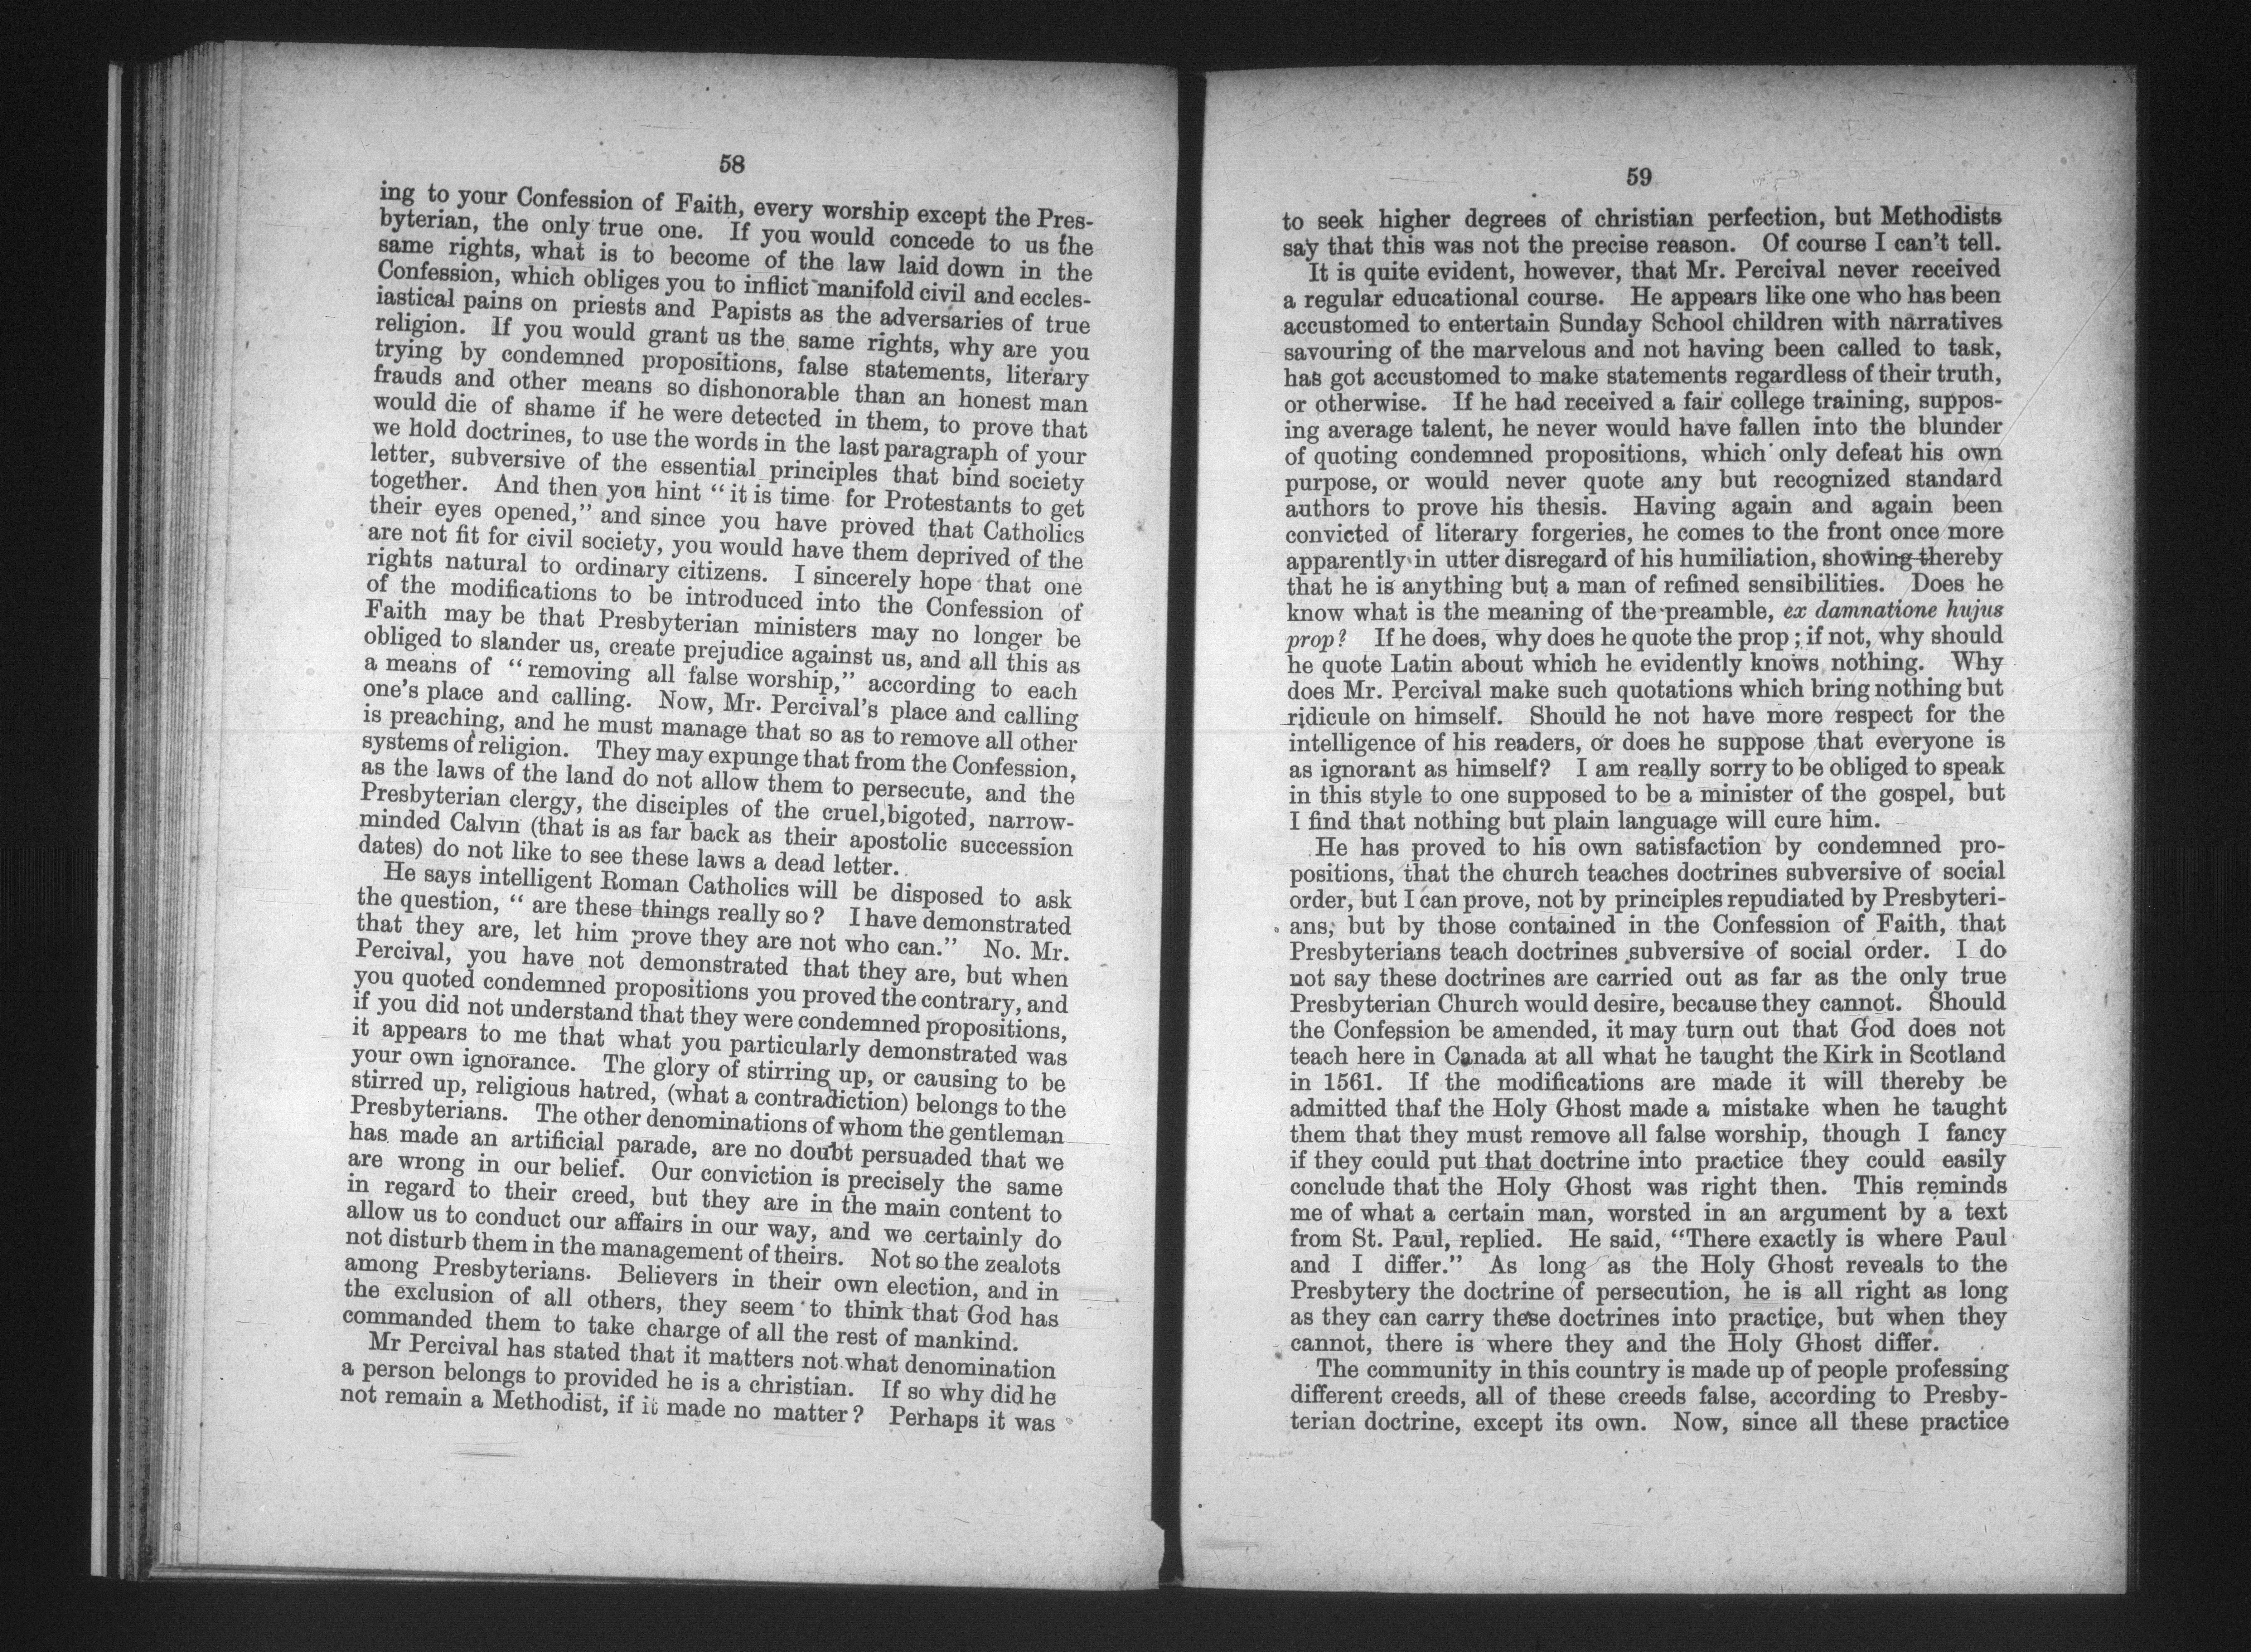 58
ing to your Confession of Faith, every worship except the Pres-
byterian, the only true one. If you would concede to us the
same rights, what is to become of the law laid down in the
Confession, which obliges you to inflict manifold civil and eccles-
iastical pains on priests and Papists as the adversaries of true
religion. If you would grant us the same rights, why are you
trying by condemned propositions, false statements, literary
frauds and other means so dishonorable than an honest man
would die of shame if he were detected in them, to prove that
we hold doctrines, to use the words in the last paragraph of your
letter, subversive of the essential principles that bind society
together. And then you hint "it is time for Protestants to get
their eyes opened," and since you have proved that Catholics
are not fit for civil society, you would have them deprived of the
rights natural to ordinary citizens. I sincerely hope that one
of the modifications to be introduced into the Confession of
Faith may be that Presbyterian ministers may no longer be
obliged to slander us, create prejudice against us, and all this as
a means of "removing all false worship," according to each
one's place and calling. Now, Mr. Percival's place and calling
is preaching, and he must manage that so as to remove all other
systems of religion. They may expunge that from the Confession,
as the laws of the land do not allow them to persecute, and the
Presbyterian clergy, the disciples of the cruel, bigoted, narrow-
minded Calvin (that is as far back as their apostolic succession
dates) do not like to see these laws a dead letter.
He says intelligent Roman Catholics will be disposed to ask
the question, "are these things really so? I have demonstrated
that they are, let him prove they are not who can." No. Mr.
Percival, you have not demonstrated that they are, but when
you quoted condemned propositions you proved the contrary, and
if you did not understand that they were condemned propositions,
it appears to me that what you particularly demonstrated was
your own ignorance. The glory of stirring up, or causing to be
stirred up, religious hatred, (what a contradiction) belongs to the
Presbyterians. The other denominations of whom the gentleman
has made an artificial parade, are no doubt persuaded that we
are wrong in our belief. Our conviction is precisely the same
in regard to their creed, but they are in the main content to
allow us to conduct our affairs in our way, and we certainly do
not disturb them in the management of theirs. Not so the zealots
among Presbyterians. Believers in their own election, and in
the exclusion of all others, they seem to think that God has
commanded them to take charge of all the rest of mankind.
Mr Percival has stated that it matters not what denomination
a person belongs to provided he is a christian. If so why did he
not remain a Methodist, if it made no matter? Perhaps it was
59
to seek higher degrees of christian perfection, but Methodists
say that this was not the precise reason. Of course I can't tell.
It is quite evident, however, that Mr. Percival never received
a regular educational course. He appears like one who has been
accustomed to entertain Sunday School children with narratives
savouring of the marvelous and not having been called to task,
has got accustomed to make statements regardless of their truth,
or otherwise. If he had received a fair college training, suppos-
ing average talent, he never would have fallen into the blunder
of quoting condemned propositions, which only defeat his own
purpose, or would never quote any but recognized standard
authors to prove his thesis. Having again and again been
convicted of literary forgeries, he comes to the front once more
apparently in utter disregard of his humiliation, showing thereby
that he is anything but a man of refined sensibilities. Does he
know what is the meaning of the preamble, ex damnatione hujus
prop? If he does, why does he quote the prop; if not, why should
he quote Latin about which he evidently knows nothing. Why
does Mr. Percival make such quotations which bring nothing but
ridicule on himself. Should he not have more respect for the
intelligence of his readers, or does he suppose that everyone is
as ignorant as himself? I am really sorry to be obliged to speak
in this style to one supposed to be a minister of the gospel, but
I find that nothing but plain language will cure him.
He has proved to his own satisfaction by condemned pro-
positions, that the church teaches doctrines subversive of social
order, but I can prove, not by principles repudiated by Presbyteri-
ans, but by those contained in the Confession of Faith, that
Presbyterians teach doctrines subversive of social order. I do
not say these doctrines are carried out as far as the only true
Presbyterian Church would desire, because they cannot. Should
the Confession be amended, it may turn out that God does not
teach here in Canada at all what he taught the Kirk in Scotland
in 1561. If the modifications are made it will thereby be
admitted thaf the Holy Ghost made a mistake when he taught
them that they must remove all false worship, though I fancy
if they could put that doctrine into practice they could easily
conclude that the Holy Ghost was right then. This reminds
me of what a certain man, worsted in an argument by a text
from St. Paul, replied. He said, "There exactly is where Paul
and I differ." As long as the Holy Ghost reveals to the
Presbytery the doctrine of persecution, he is all right as long
as they can carry these doctrines into practice, but when they
cannot, there is where they and the Holy Ghost differ.
The community in this country is made up of people professing
different creeds, all of these creeds false, according to Presby-
terian doctrine, except its own. Now, since all these practice